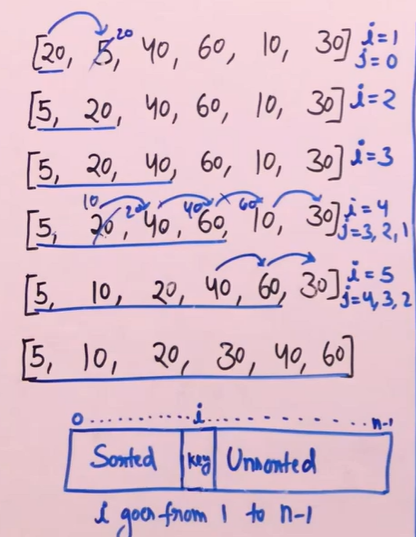 [20, 5, 20 40, 60, 10, 30] i=1
j=0
[5, 20, 40, 60, 10, 30] i=2
[5, 20, 40, 60, 10, 30] i=3
10 20 40 60
[5, 20, 40, 60, 10, 30] i=4
j=3, 2, 1
[5, 10, 20, 40, 60, 30] i=5
j=4, 3, 2
[5, 10, 20, 30, 40, 60]
0 ........ i ........ n-1
Sorted key Unsorted
i goes from 1 to n-1